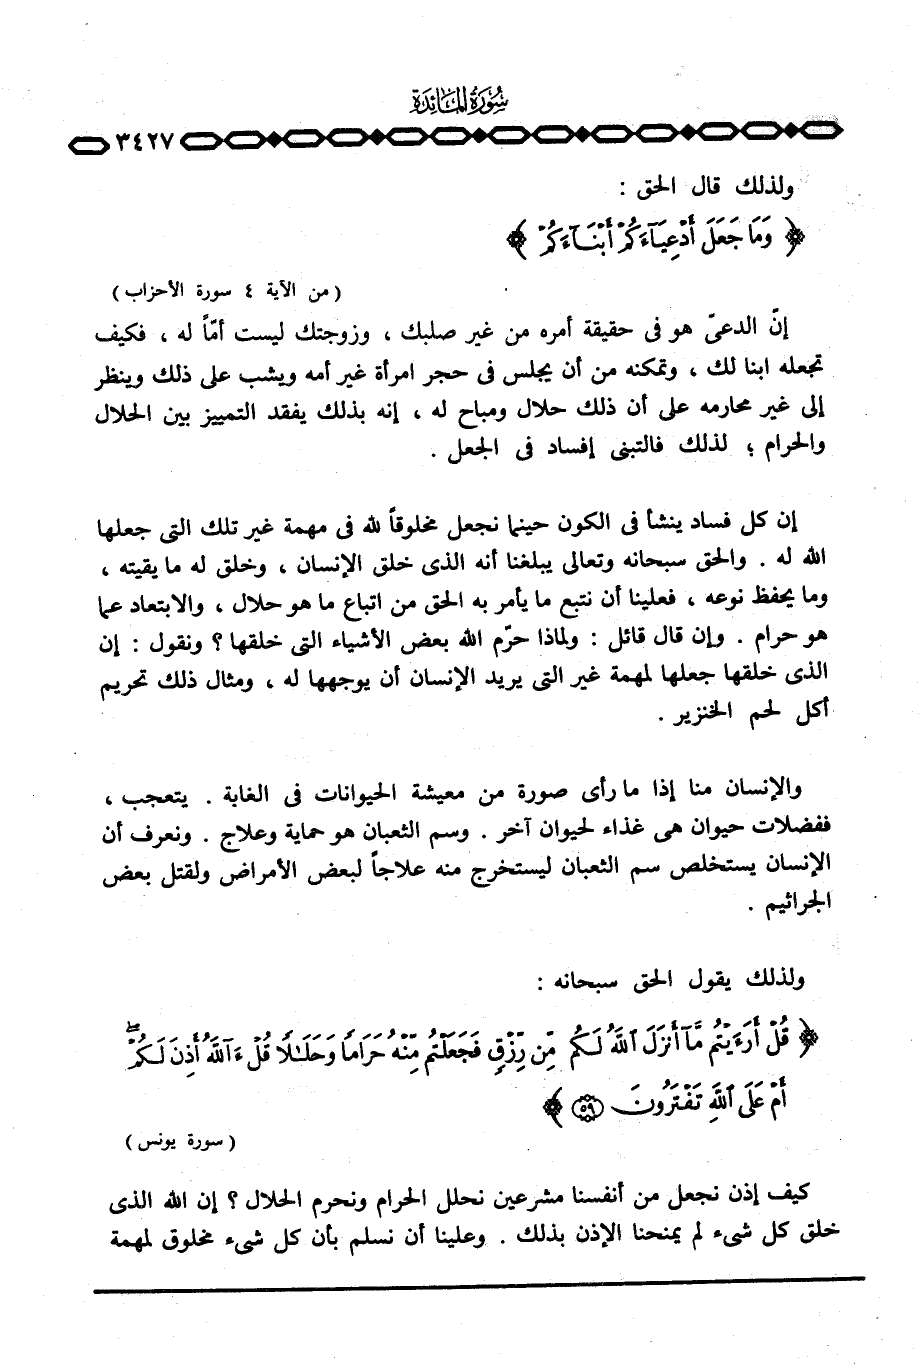 سُورَةُ المَائِدَة
٣٤٢٧
ولذلك قال الحق :
﴿ وَمَا جَعَلَ أَدْعِيَآءَكُمْ أَبْنَآءَكُمْ ﴾
( من الآية ٤ سورة الأحزاب )
إنّ الدعىّ هو فى حقيقة أمره من غير صلبك ، وزوجتك ليست أمّاً له ، فكيف
تجعله ابنا لك ، وتمكنه من أن يجلس فى حجر امرأة غير أمه ويشب على ذلك وينظر
إلى غير محارمه على أن ذلك حلال ومباح له ، إنه بذلك يفقد التمييز بين الحلال
والحرام ؛ لذلك فالتبنى إفساد فى الجعل .
إن كل فساد ينشأ فى الكون حينما نجعل مخلوقاً لله فى مهمة غير تلك التى جعلها
الله له . والحق سبحانه وتعالى يبلغنا أنه الذى خلق الإنسان ، وخلق له ما يقيته ،
وما يحفظ نوعه ، فعلينا أن نتبع ما يأمر به الحق من اتباع ما هو حلال ، والابتعاد عما
هو حرام . وإن قال قائل : ولماذا حرّم الله بعض الأشياء التى خلقها ؟ ونقول : إن
الذى خلقها جعلها لمهمة غير التى يريد الإنسان أن يوجهها له ، ومثال ذلك تحريم
أكل لحم الخنزير .
والإنسان منا إذا ما رأى صورة من معيشة الحيوانات فى الغابة . يتعجب ،
ففضلات حيوان هى غذاء لحيوان آخر . وسم الثعبان هو حماية وعلاج . ونعرف أن
الإنسان يستخلص سم الثعبان ليستخرج منه علاجاً لبعض الأمراض ولقتل بعض
الجراثيم .
ولذلك يقول الحق سبحانه :
﴿ قُلْ أَرَءَيْتُم مَّآ أَنزَلَ ٱللَّهُ لَكُم مِّن رِّزْقٍ فَجَعَلْتُم مِّنْهُ حَرَامًا وَحَلَٰلًا قُلْ ءَآللَّهُ أَذِنَ لَكُمْۖ
أَمْ عَلَى ٱللَّهِ تَفْتَرُونَ ٥٩ ﴾
( سورة يونس )
كيف إذن نجعل من أنفسنا مشرعين نحلل الحرام ونحرم الحلال ؟ إن الله الذى
خلق كل شىء لم يمنحنا الإذن بذلك . وعلينا أن نسلم بأن كل شىء مخلوق لمهمة